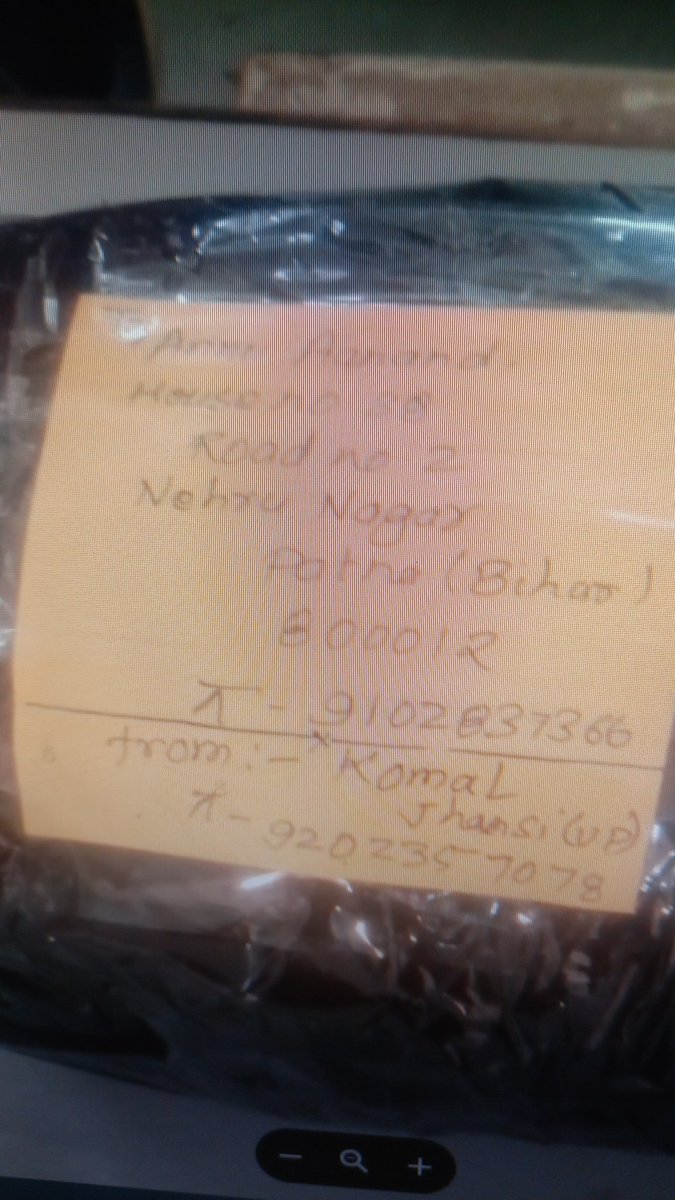 Anand.
House no 38
Road no 2
Nehru Nagar
Patna (Bihar)
800012
- 9102837366
from :- Komal
Jhansi (UP)
- 9202357078